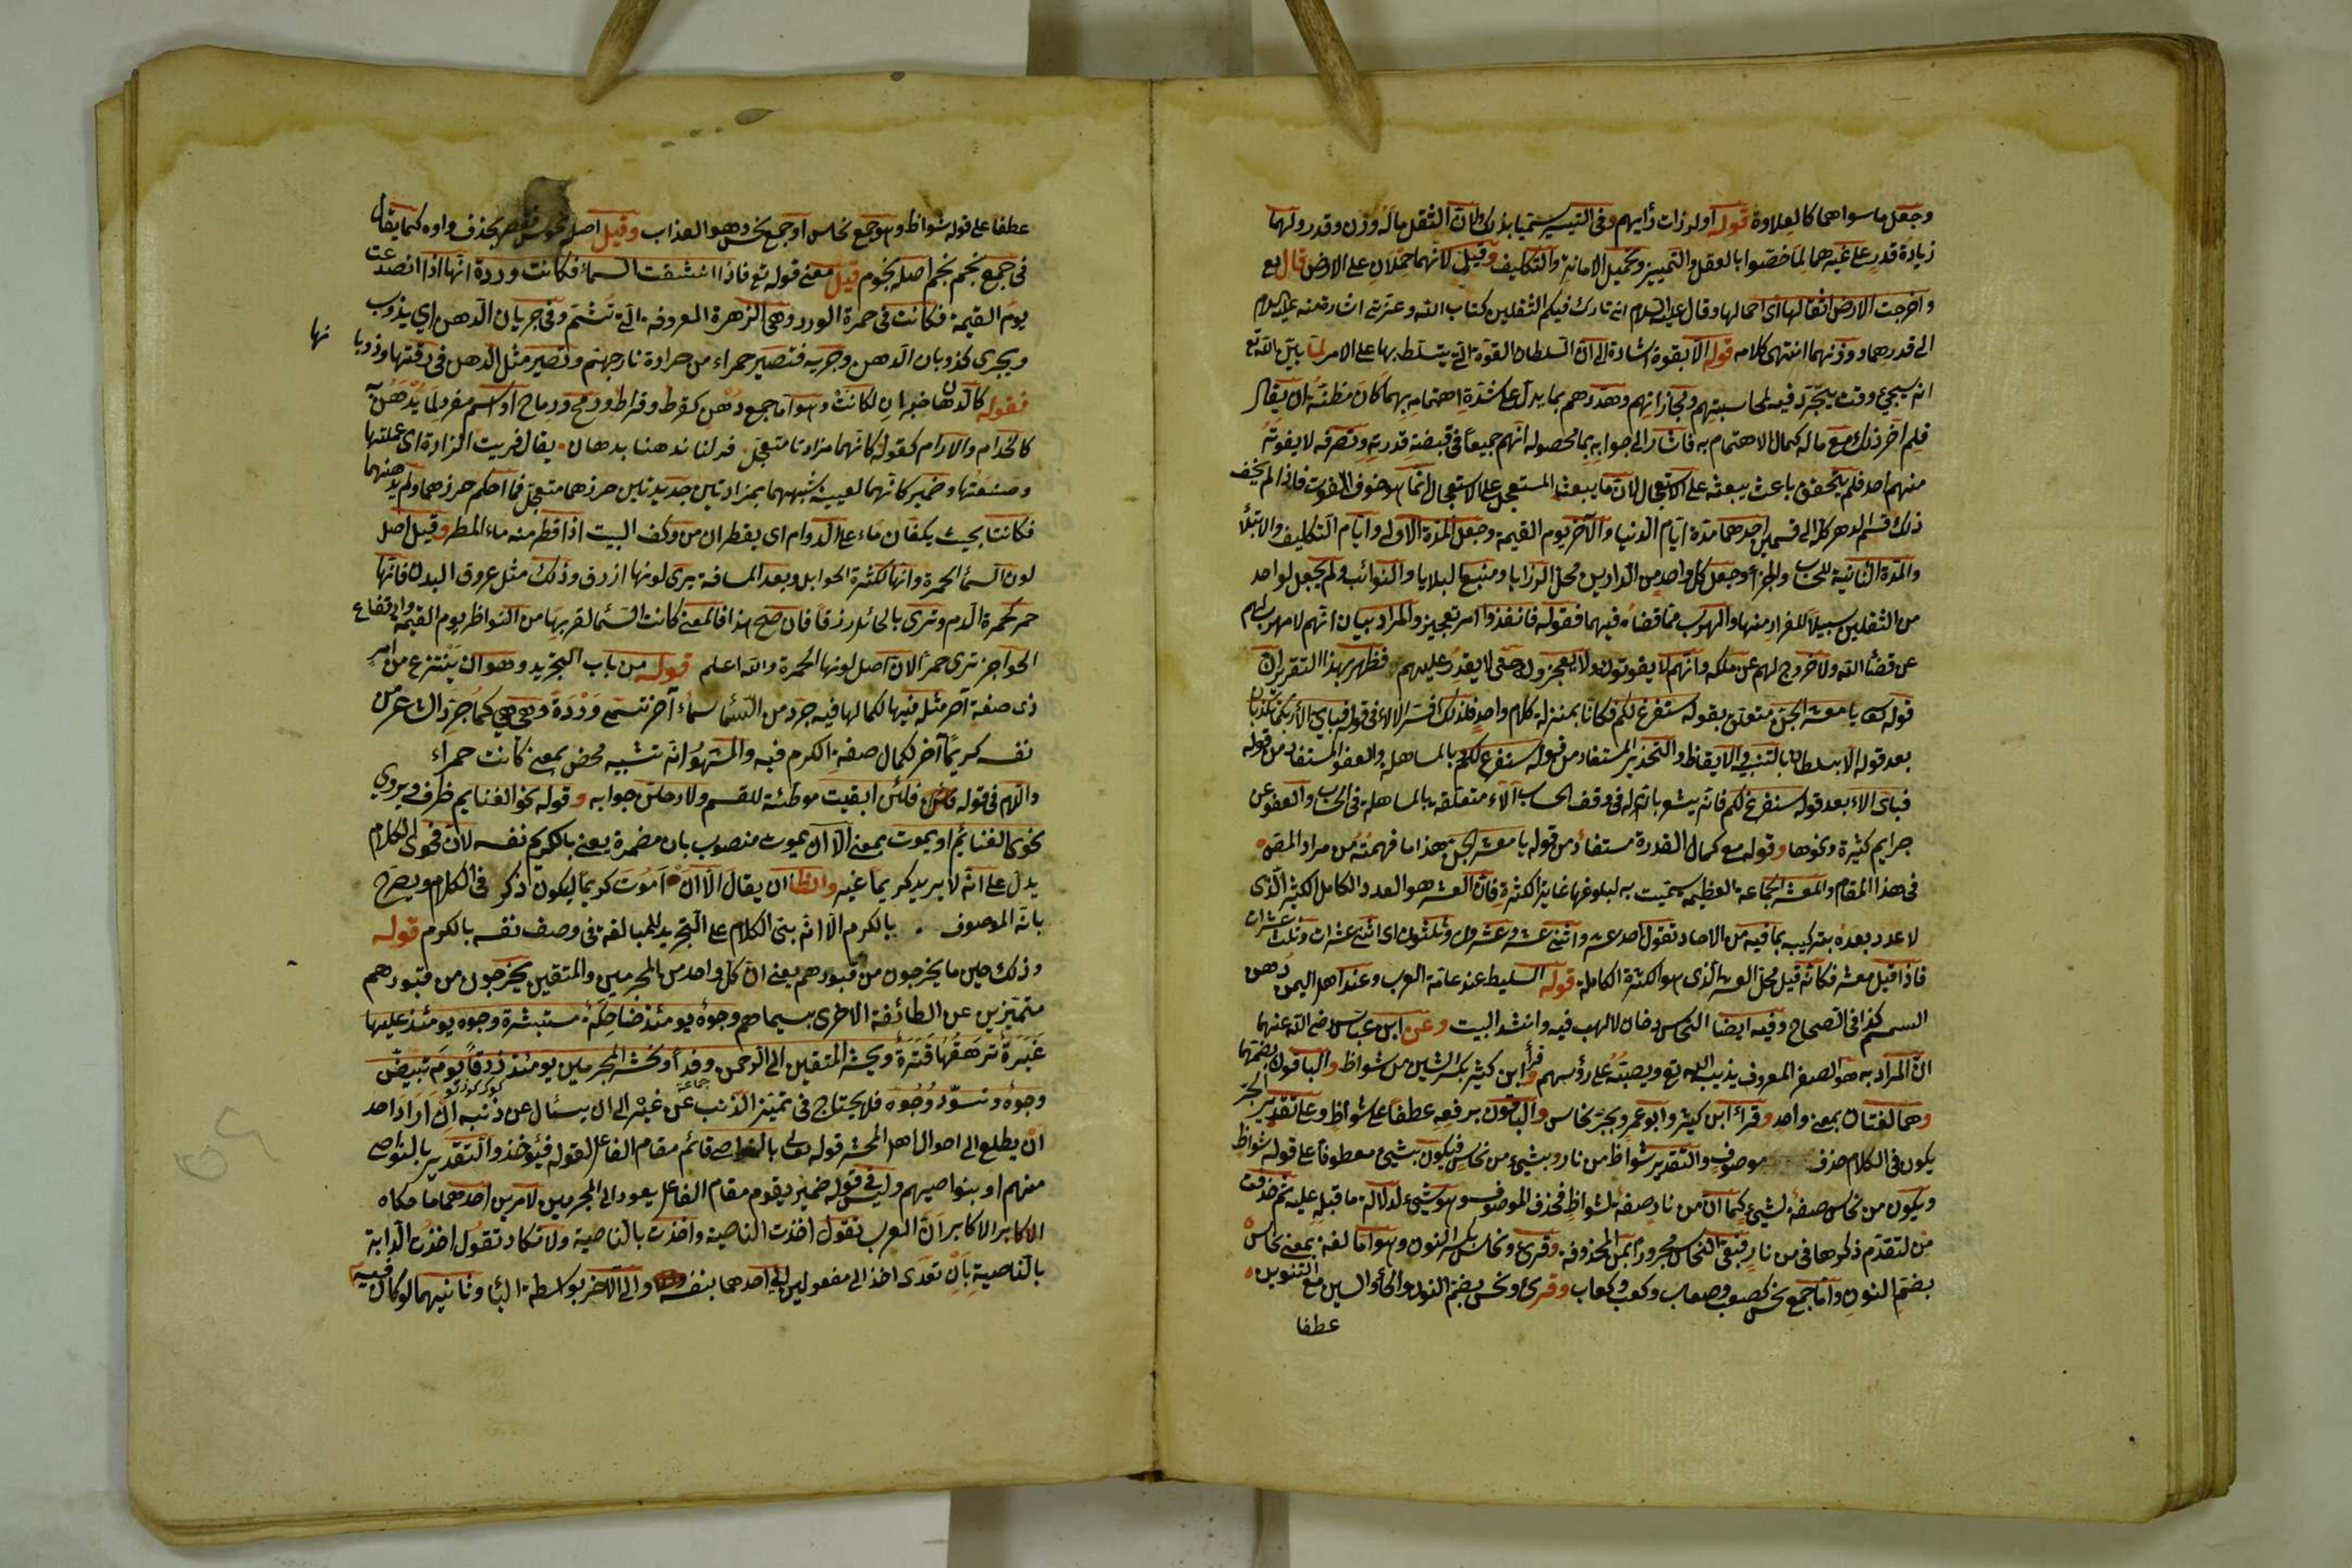 وجعل ما سواهما كالعلاوة قوله اولرزات رأيهم وفى التيسير سميا بذلك لان الثقل ماله وزن وقدر ولهما
زيادة قدر على غيرهما لما خصّوا بالعقل والتمييز وتحميل الامانة والتكليف وقيل لانهما حملان على الارض قال تع
واخرجت الارض اثقالها اى احمالها وقال عليه السلام انى تارك فيكم الثقلين كتاب الله وعترتى اشارة منه عليه السلام
الى قدرهما ووزنهما انتهى كلامه قوله الا بقوة اشارة الى ان السلطان القوة التى يتسلط بها على الامر لما بيّن الله تع
انه سيجئ وقت يتجرد فيه لمحاسبتهم ومجازاتهم وهددهم بما يدل على شدة اهتمامه بهما كان مظنة ان يقال
فلم اخر ذلك مع ماله كمال الاهتمام به فاشار الى جوابه بما محصوله انهم جميعا فى قبضة قدرته وتصرفه لا يفوته
منهم احد فلم يتحقق باعث يبعثه على الاستعجال لان ما يبعث المستعجل على الاستعجال انما هو خوف الفوت فاذا لم يخف
ذلك قسم الدهر كله الى قسمين احدهما مدة ايام الدنيا والآخر يوم القيمة وجعل المدة الاولى وايام التكليف والابتلأ
والمدة الثانية للحساب والجزأ وجعل كل واحد من الدارين محل الرزايا ومنبع البلايا والنوائب ولم يجعل لواحد
من الثقلين سبيلا للفرار منها والهرب مما قضاه فيهما فقوله فانفذوا امر تعجيز والمراد بيان انهم لا مهرب لهم
عن قضأ الله ولا خروج لهم عن ملكه وانهم لا يفوتون ولا يعجزون حتى لا يقدر عليهم فظهر بهذا التقرير ان
قوله تعالى يا معشر الجن متعلق بقوله سنفرغ لكم فكانا بمنزلة كلام واحد فلذلك فسر الالاء فى قوله فباى الآء ربكما تكذبان
بعد قوله الا بسلطان بالتنبيه والايقاظ والتحذير المستفاد من قوله سنفرغ لكم بالمساهلة والعفو المستفاد من قوله
فباى الاء بعد قوله سنفرغ لكم فانه يشعر بان له فى وقف الحساب آلاء متعلقة بالمساهلة فى الحساب والعفو عن
جرايم كثيرة ونحوها وقوله مع كمال القدرة مستفاد من قوله يا معشر الجن هذا ما فهمته من مراد المص
فى هذا المقام والمعشر الجماعة العظيمة سميت به لبلوغها غاية الكثرة فان العشر هو العدد الكامل الكثير الذى
لا عدد بعده بتركيبه بما فيه من الاحاد تقول احد عشر واثنى عشر وعشرون وثلثون اى اثنى عشرات وثلث عشرات
فاذا قيل معشر فكانه قيل محل العشر الذى هو الكثرة الكاملة قوله السليط عند عامة العرب وعند اهل اليمن دهن
السمسم كذا فى الصحاح وفيه ايضا النحاس دخان لا لهب فيه وانشد البيت وعن ابن عباس رضى الله عنهما
ان المراد به هو الصفر المعروف يذيب الله تع ويصبّه على رؤسهم وقرأ ابن كثير بكسر الشين من شواظ والباقون بضمها
وهما لغتان بمعنى واحد وقرأ ابن كثير وابو عمرو بجر نحاس والباقون برفعه عطفا على شواظ وعلى تقدير الجر
يكون فى الكلام حذف موصوف والتقدير شواظ من نار وبشىء من نحاس فيكون بشىء معطوفا على قوله شواظ
ويكون من نحاس صفة لشىء كما ان من نار صفة لشواظ فحذف الموصوف وهو شىء لدلالة ما قبله عليه ثم حذفت
من لتقدم ذكرها فى من نار فبقى النحاس مجرورا بمن المحذوفة وقرئ ونحاس بكسر النون وهو اما لغة بمعنى نحاس
بضم النون واما جمع نحس كصعب وصعاب وكعب وكعاب وقرئ ونحس بضم النون والحاء والسين مع التنوين
عطفا
عطفا على قوله شواظ وهو جمع نحاس او جمع نحس وهو العذاب وقيل اصله نحوس فقصر بحذف واوه كما يقال
فى جمع نجم نجم اصله نجوم قيل معنى قوله تع فاذا انشقت السماء فكانت وردة انها اذا انصدعت
يوم القيمة فكانت فى حمرة الورد وهى الزهرة المعروفة التى تُشتم وفى جريان الدهن اي يذوب
ويجرى كذوبان الدهن وجريه فتصير حمراء من حرارة نار جهنم وتصير مثل الدهن فى رقتها وذوبا
نها
فقوله كالدهان خبر ان لكانت وهو اما جمع دهن كقرط وقراط ورمح ورماح او اسم مفرد لما يُدهن به
كالحزام والادام كقوله كانهما مزادتا متعجل فريان لما تدهنا بدهان يقال فريت المزادة اى عملتها
وصنعتها وضمير كانهما لعينيه شبههما بمزادتين جديدتين خرزهما متعجل فما احكم خرزهما ولم يدهنهما
فكانتا بحيث يكفان ماء على الدوام اى يقطران من وكف البيت اذا قطر منه ماء المطر وقيل اصل
لون السمأ الحمرة وانها لكثرة الحوايل وبعد المسافة يرى لونها ازرق وذلك مثل عروق البدن فانها
حمر كحمرة الدم وترى بالحائل زرقا فان صح هذا فالمعنى كانت السمأ لقربها من النواظر يوم القيمة وارتفاع
الحواجز ترى حمرأ لان اصل لونها الحمرة والله اعلم قوله من باب التجريد وهو ان ينتزع من امر
ذى صفة آخر مثله فيها لكمالها فيه جرد من السمأ سمأ آخر تسمى وردة وهى هى كما جرد الشاعر من
نفسه كريما آخر لكمال صفة الكرم فيه والمشهور انه تشبيه محض بمعنى كانت حمراء
واللام فى قوله فلئن ابقيت موطئة للقسم ولارحلن جوابه وقوله نحو الغنايم ظرف ويروي
نحوى الغنائم او يموت بمعنى الا ان يموت منصوب بان مضمرة يعنى بالكريم نفسه لان فحوى الكلام
يدل على انه لا يريد كريما غيره والظا ان يقال الا ان اموت كريما ليكون ذكر فى الكلام ويصرح
بانه الموصوف بالكرم الا انه بنى الكلام على التجريد للمبالغة فى وصف نفسه بالكرم قوله
وذلك حين ما يخرجون من قبورهم يعنى ان كل واحد من المجرمين والمتقين يخرجون من قبورهم
متميزين عن الطائفة الاخرى بسيماهم وجوه يومئذ ضاحكة مستبشرة وجوه يومئذ عليها
غبرة ترهقها قترة ويحشر المتقين الى الرحمن وفدا ونحشر المجرمين يومئذ زرقا يوم تبيضّ
وجوه وتسودّ وجوه فلا يحتاج فى تميز المذنب عن غيره الى ان يسئال عن ذنبه ان اراد احد
ان يطلع الى احوال اهل المحشر قوله تعالى بالنواصى قائم مقام الفاعل لقوله فيؤخذ والتقدير بالنواصى
منهم او بنواصيهم وليس فى قوله ضمير يقوم مقام الفاعل يعود الى المجرمين لامرين احدهما ما حكاه
الاكابر الاكابر ان العرب تقول اخذت الناصية واخذت بالناصية ولا تكاد تقول اخذت الدابة
بالناصية بان تعدى اخذ الى مفعولين الى احدهما بنفسه والى الآخر بواسطة البأ وثانيهما لو كان فيه